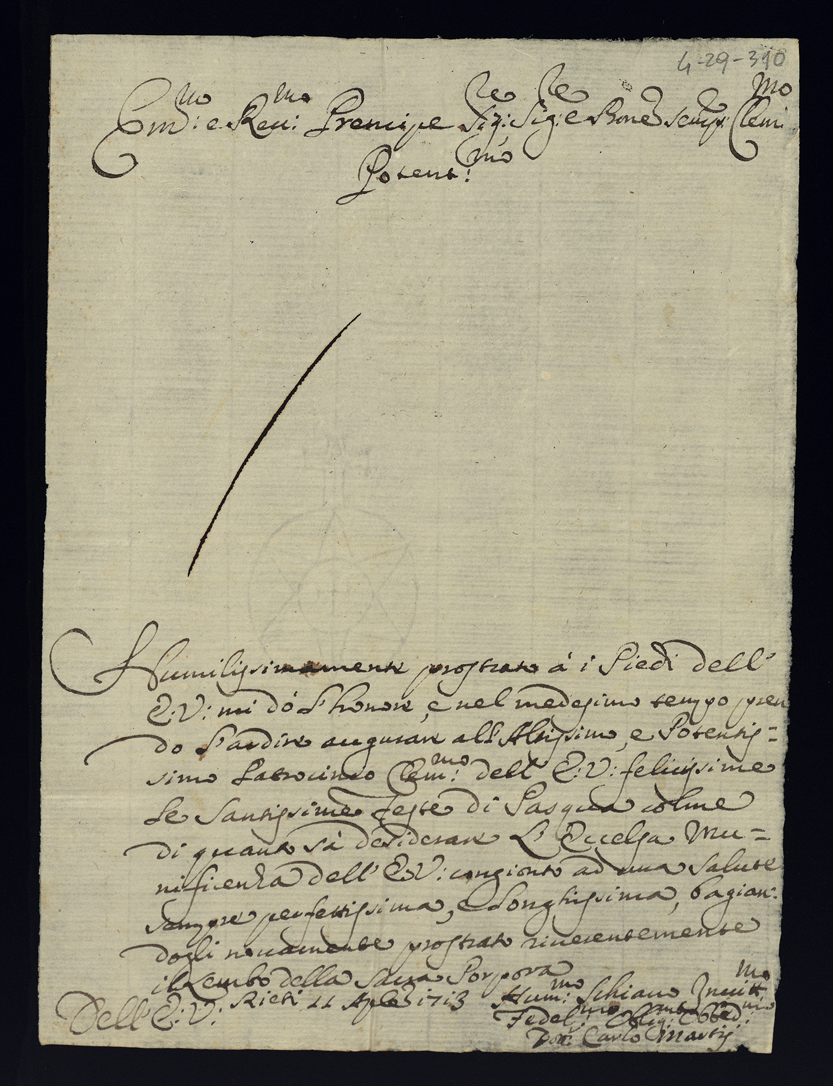 4-29-310
Em:mo e Reu:mo Prencipe Sig:re Sig:re e Pone sempre Clem:mo
Potent:mo
Humilissimamente prostrato à i Piedi dell'
E:V: mi dò l'honore, e nel medesimo tempo pren
do l'ardire augurare all'Altissimo, e Potentis=
simo Patrocinio Clem:mo dell'E:V: felicissime
le Santissime feste di Pasqua colme
di quanto sà desiderare l'Eccelsa Mu=
nificenza dell'E:V: congionto ad una salute
sempre perfettissima, e longhissima, bagian:
dogli novamente prostrato riverentemente
il Lembo della Sacra Porpora
Dell'E:V: Rieti 11 Aple 1713
Hum:mo Schiavo Inuitt:mo
Fedel:mo Oblig:mo Obbed:mo
Don Carlo Martij